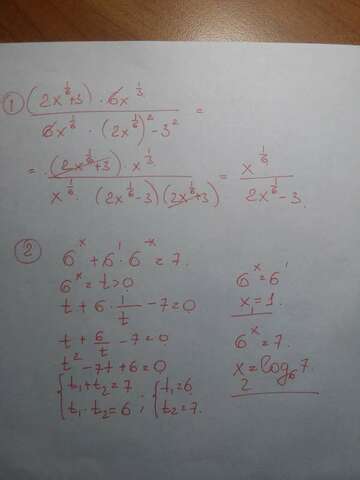 ① (2x^(1/6)+3) · 6x^(1/3) / 6x^(1/6) · (2x^(1/6))² − 3² =
= (2x^(1/6)+3) · x^(1/3) / x^(1/6) · (2x^(1/6)−3)(2x^(1/6)+3) = x^(1/6) / 2x^(1/6)−3
② 6^x + 6^1 · 6^(−x) = 7.
6^x = t > 0
t + 6 · 1/t − 7 = 0
t + 6/t − 7 = 0
t² − 7t + 6 = 0
{ t₁ + t₂ = 7 ; { t₁ = 6
{ t₁ · t₂ = 6 ; { t₂ = 7.
6^x = 6^1
x₁ = 1.
6^x = 7.
x₂ = log₆7.